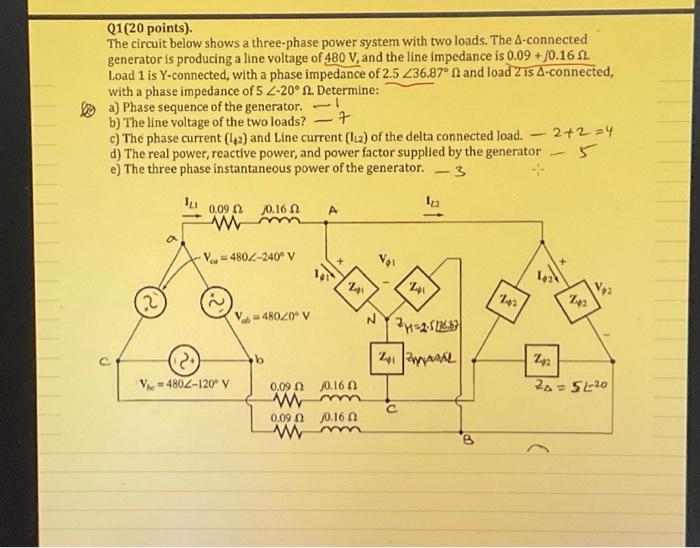 Q1(20 points).
The circuit below shows a three-phase power system with two loads. The Δ-connected
generator is producing a line voltage of 480 V, and the line impedance is 0.09 + j0.16 Ω
Load 1 is Y-connected, with a phase impedance of 2.5 ∠36.87° Ω and load 2 is Δ-connected,
with a phase impedance of 5 ∠-20° Ω. Determine:
a) Phase sequence of the generator. — 1
b) The line voltage of the two loads? — 7
c) The phase current (Iϕ2) and Line current (IL2) of the delta connected load. — 2+2=4
d) The real power, reactive power, and power factor supplied by the generator — 5
e) The three phase instantaneous power of the generator. — 3
IL1 0.09 Ω j0.16 Ω A IL2
a
Vca = 480∠-240° V
Iϕ1 + Zϕ1 - Vϕ1 Zϕ1
Zϕ2 Iϕ2 + Zϕ2 Vϕ2 -
Vab = 480∠0° V
N
Zϕ1
Zϕ2
c b
Vbc = 480∠-120° V
0.09 Ω j0.16 Ω
C
ZΔ = 5∠-20
0.09 Ω j0.16 Ω
B